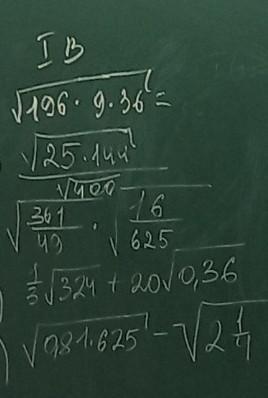 I B
√196·9·36 =
√25·144
√400
√361/49 · √16/625
1/3√324 + 20√0,36
√081·625 − √2 1/4